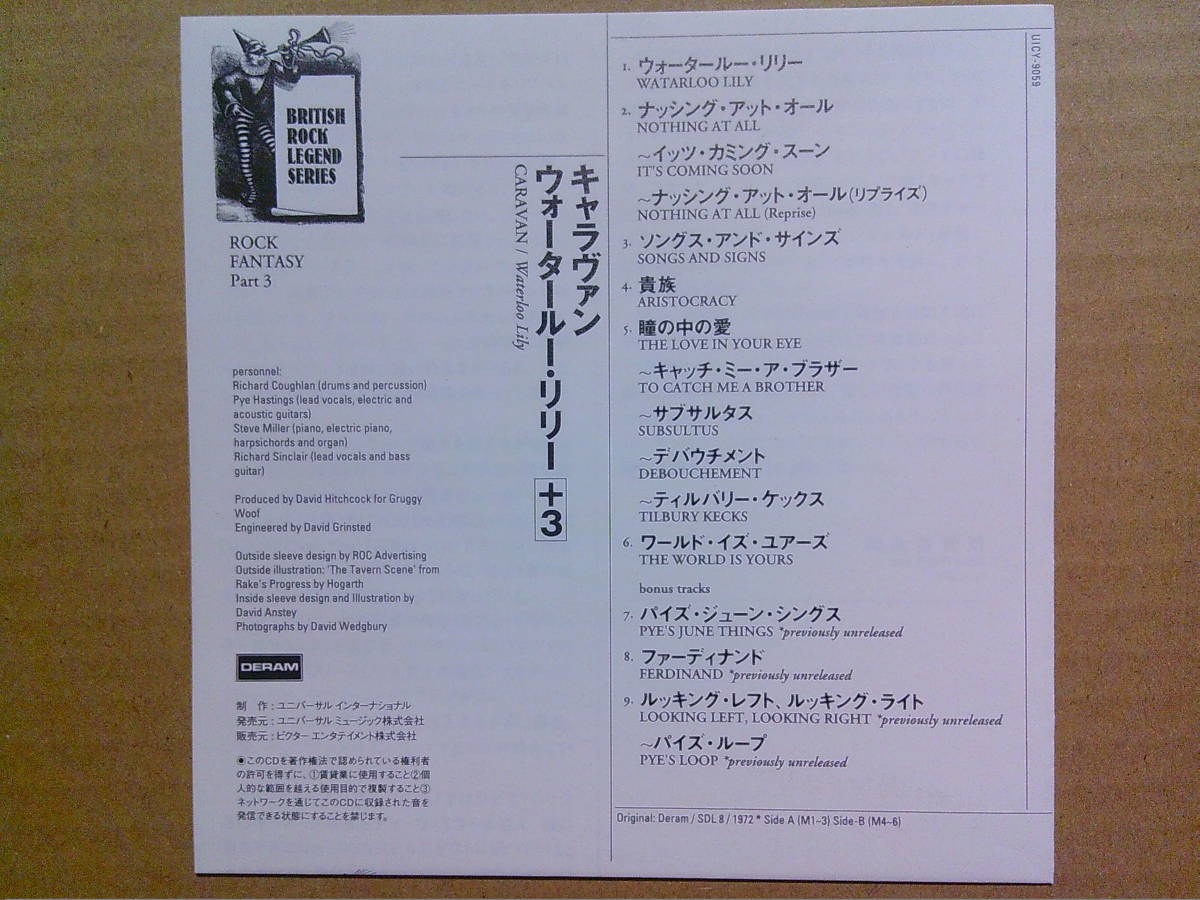 BRITISH
ROCK
LEGEND
SERIES
ROCK
FANTASY
Part 3
キャラヴァン
ウォータールー・リリー +3
CARAVAN / Waterloo Lily
personnel:
Richard Coughlan (drums and percussion)
Pye Hastings (lead vocals, electric and
acoustic guitars)
Steve Miller (piano, electric piano,
harpsichords and organ)
Richard Sinclair (lead vocals and bass
guitar)
Produced by David Hitchcock for Gruggy
Woof
Engineered by David Grinsted
Outside sleeve design by ROC Advertising
Outside illustration: 'The Tavern Scene' from
Rake's Progress by Hogarth
Inside sleeve design and Illustration by
David Anstey
Photographs by David Wedgbury
DERAM
制　作：ユニバーサル インターナショナル
発売元：ユニバーサル ミュージック株式会社
販売元：ビクター エンタテイメント株式会社
◉このCDを著作権法で認められている権利者
の許可を得ずに、①賃貸業に使用すること②個
人的な範囲を越える使用目的で複製すること③
ネットワークを通じてこのCDに収録された音を
発信できる状態にすることを禁じます。
UICY-9059
1. ウォータールー・リリー
WATARLOO LILY
2. ナッシング・アット・オール
NOTHING AT ALL
〜イッツ・カミング・スーン
IT'S COMING SOON
〜ナッシング・アット・オール（リプライズ）
NOTHING AT ALL (Reprise)
3. ソングス・アンド・サインズ
SONGS AND SIGNS
4. 貴族
ARISTOCRACY
5. 瞳の中の愛
THE LOVE IN YOUR EYE
〜キャッチ・ミー・ア・ブラザー
TO CATCH ME A BROTHER
〜サブサルタス
SUBSULTUS
〜デバウチメント
DEBOUCHEMENT
〜ティルバリー・ケックス
TILBURY KECKS
6. ワールド・イズ・ユアーズ
THE WORLD IS YOURS
bonus tracks
7. パイズ・ジューン・シングス
PYE'S JUNE THINGS *previously unreleased
8. ファーディナンド
FERDINAND *previously unreleased
9. ルッキング・レフト、ルッキング・ライト
LOOKING LEFT, LOOKING RIGHT *previously unreleased
〜パイズ・ループ
PYE'S LOOP *previously unreleased
Original: Deram / SDL 8 / 1972 * Side A (M1~3) Side-B (M4~6)